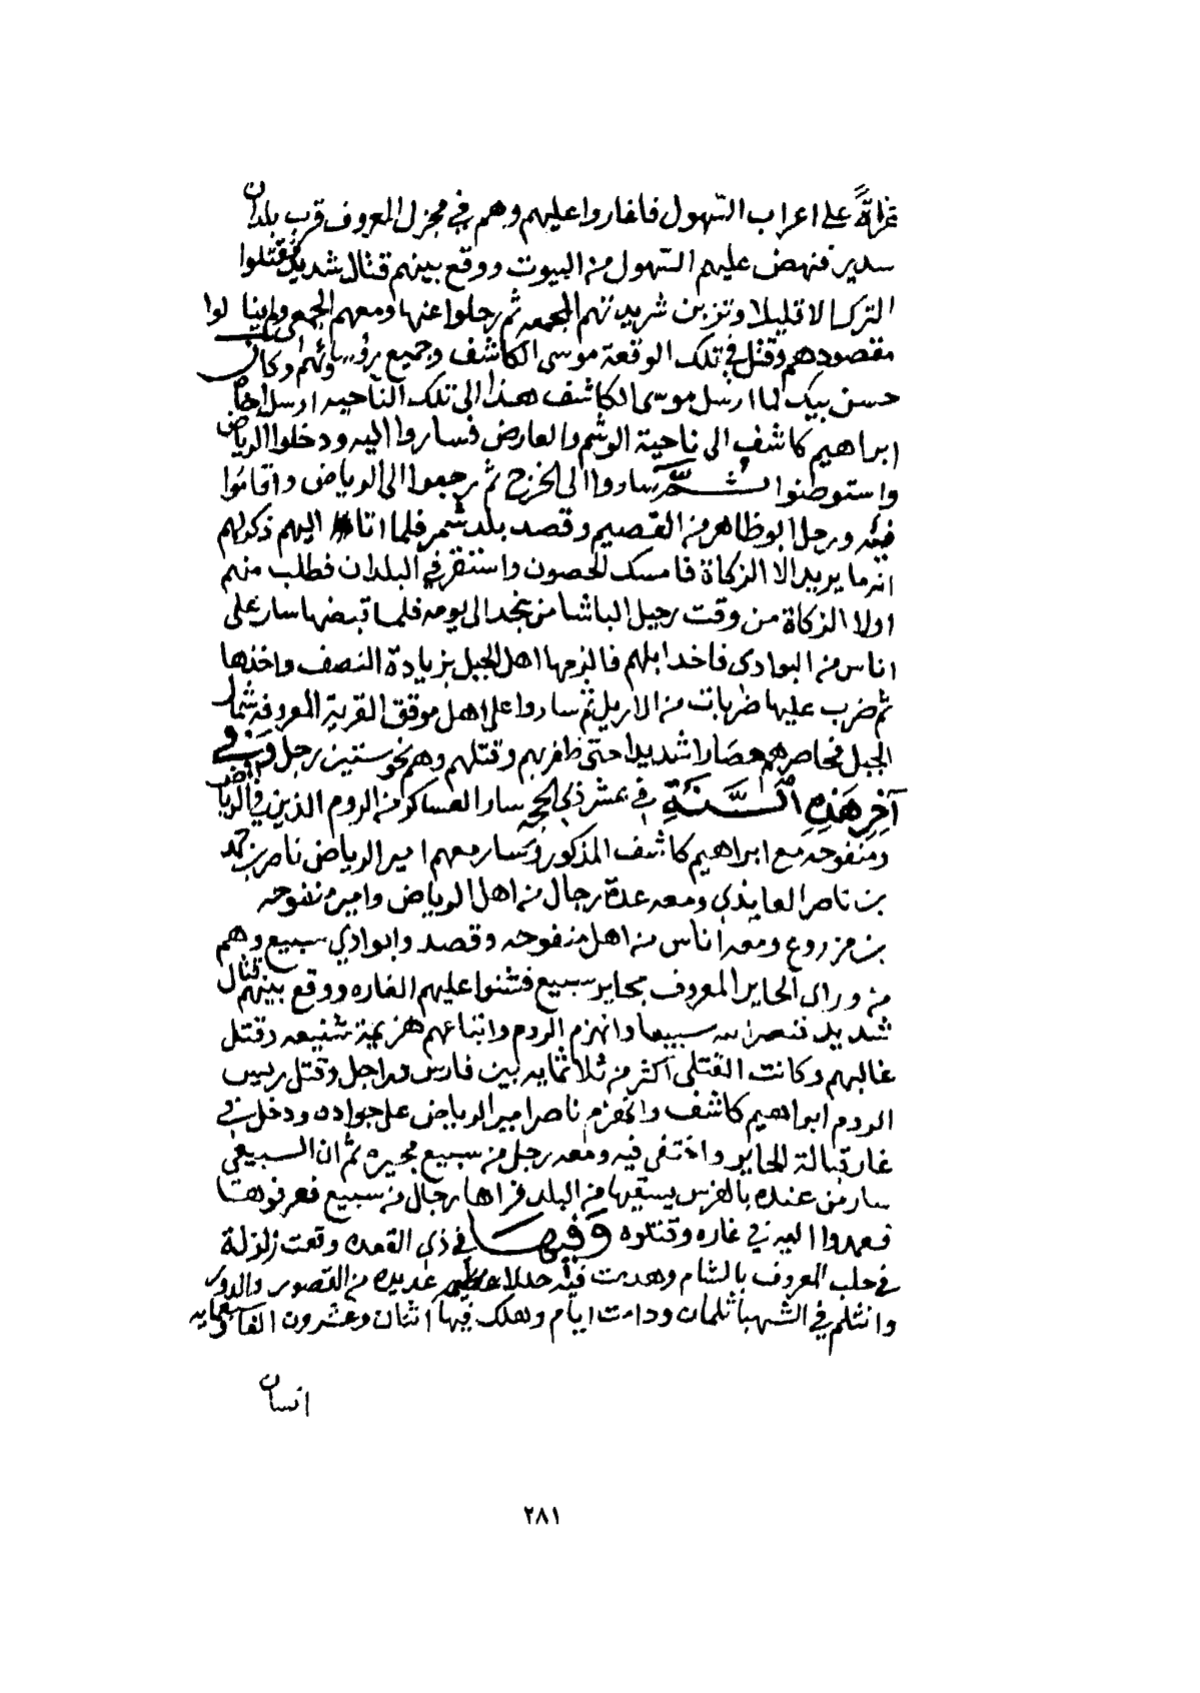 غزاة على اعراب السهول فاغاروا عليهم وهم في مجزل المعروف قرب بلدان
سدير فنهض عليهم السهول من البيوت ووقع بينهم قتال شديد فقتلوا
الترك الا قليلا وتزبن شريدتهم المجمعه ثم رحلوا عنها ومعهم الجمع ولم ينالوا
مقصودهم وقتل في تلك الوقعة موسى الكاشف وجميع رؤساؤهم وكان
حسن بيك لما ارسل موسى الكاشف هذا الى تلك الناحيه ارسل اخاه
ابراهيم كاشف الى ناحية الوشم والعارض فساروا اليه ودخلوا الرياض
واستوطنوا ثم ساروا الى الخرج ثم رجعوا الى الرياض واقاموا
فيه ورحل ابو ظاهر من القصيم وقصد بلد شمر فلما اتا اليهم ذكر لهم
انه ما يريد الا الزكاة فامسك الحصون واستقر في البلدان فطلب منهم
اولا الزكاة من وقت رحيل الباشا من نجد الى يومه فلما قبضها سار على
اناس من البوادى فاخذ ابلهم فالزمها اهل الجبل بزيادة النصف واخذها
ثم ضرب عليها ضربات من الاريل ثم ساروا على اهل موقق القرية المعروفة شمال
الجبل فحاصرهم حصارا شديدا حتى ظفر بهم وقتلهم وهم نحو ستين رجل وفي
آخر هذه السنة في عشر ذي الحجه سار العساكر من الروم الذين في الرياض
ومنفوحه مع ابراهيم كاشف المذكور وسار معهم امير الرياض ناصر بن حمد
بن ناصر العايذي ومعه عدة رجال من اهل الرياض وامير منفوحه
بن مزروع ومعه اناس من اهل منفوحه وقصدوا بوادي سبيع وهم
من وراى الحاير المعروف بحاير سبيع فشنوا عليهم الغاره ووقع بينهم قتال
شديد فنصر الله سبيعا وانهزم الروم واتباعهم هزيمة شنيعه وقتل
غالبهم وكانت القتلى اكثر من ثلاثمايه بين فارس وراجل وقتل ريس
الروم ابراهيم كاشف وانهزم ناصر امير الرياض على جواده ودخل في
غار قبالة الحاير واختفى فيه ومعه رجل من سبيع مجيره ثم ان السبيعي
سار من عنده بالفرس يسقيها من البلد فراها رجال من سبيع فعرفوها
فعمدوا اليه في غاره وقتلوه وفيها في ذي القعده وقعت زلزلة
في حلب المعروف بالشام وهدمت فيه عديده من القصور والدور
وانثلم في الشهبا ثلمان ودامت ايام وهلك فيها اثنان وعشرون الفا وسبعمايه
انسان
٢٨١